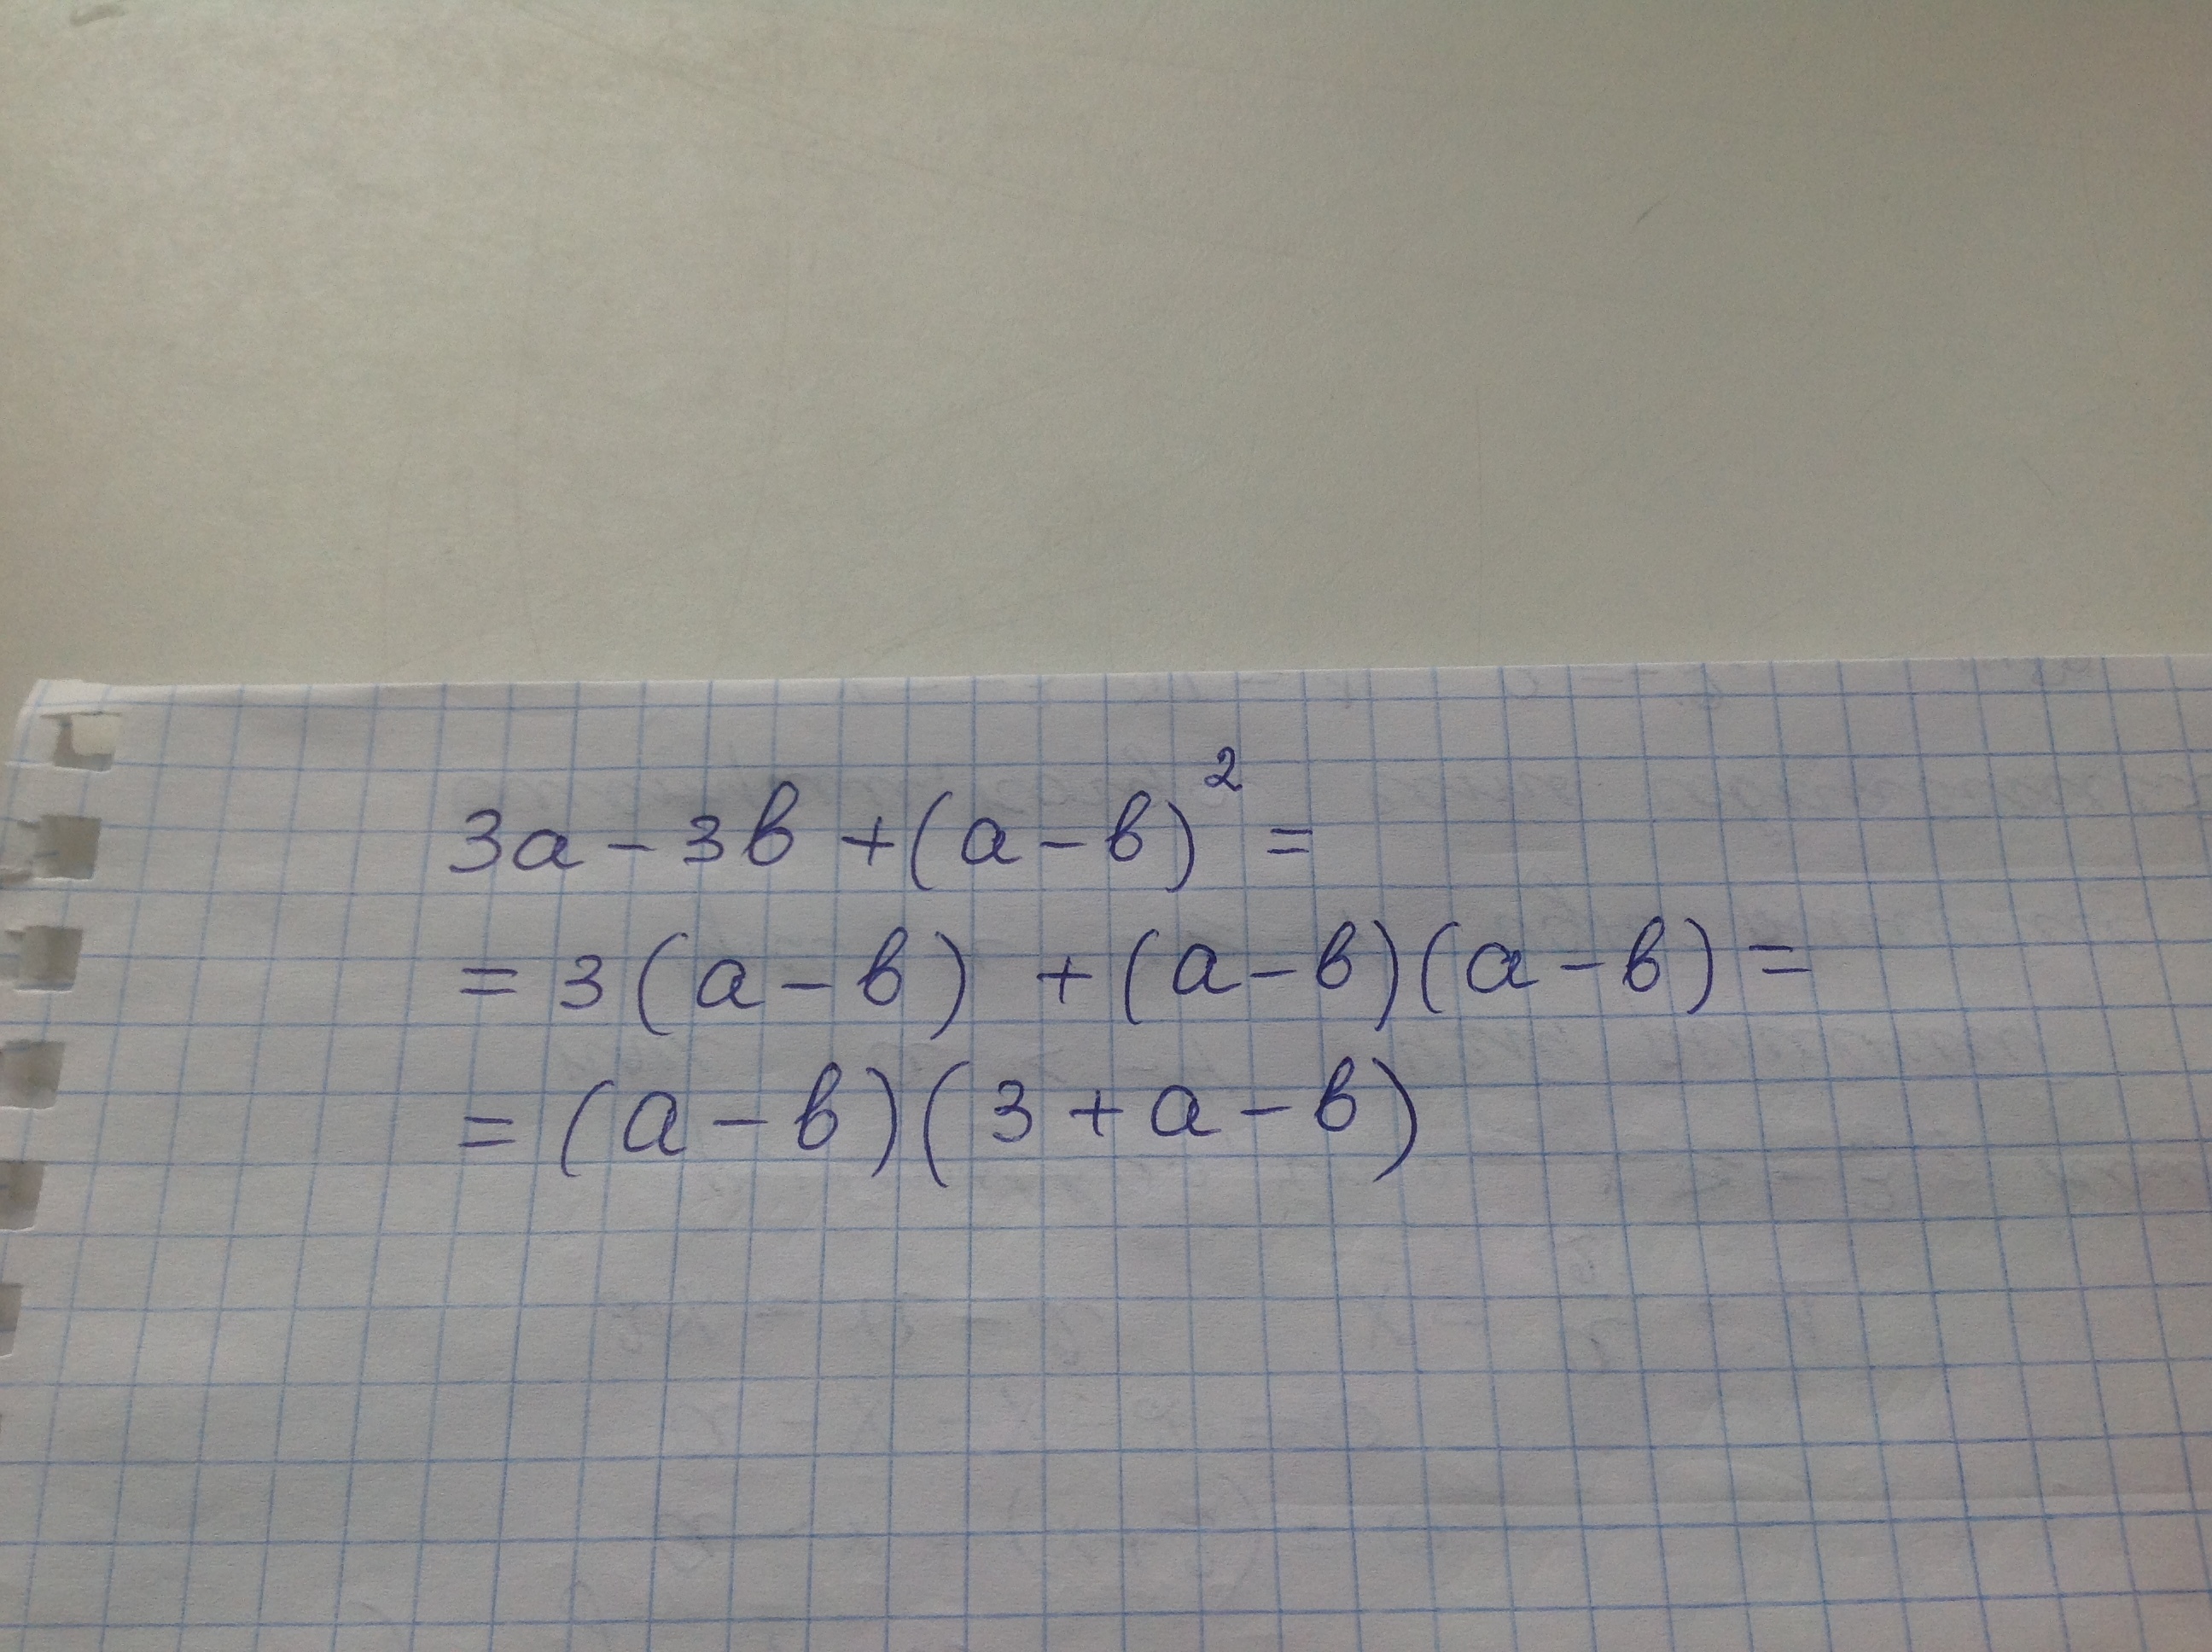 3a - 3b + (a - b)² =
= 3(a - b) + (a - b)(a - b) =
= (a - b)(3 + a - b)